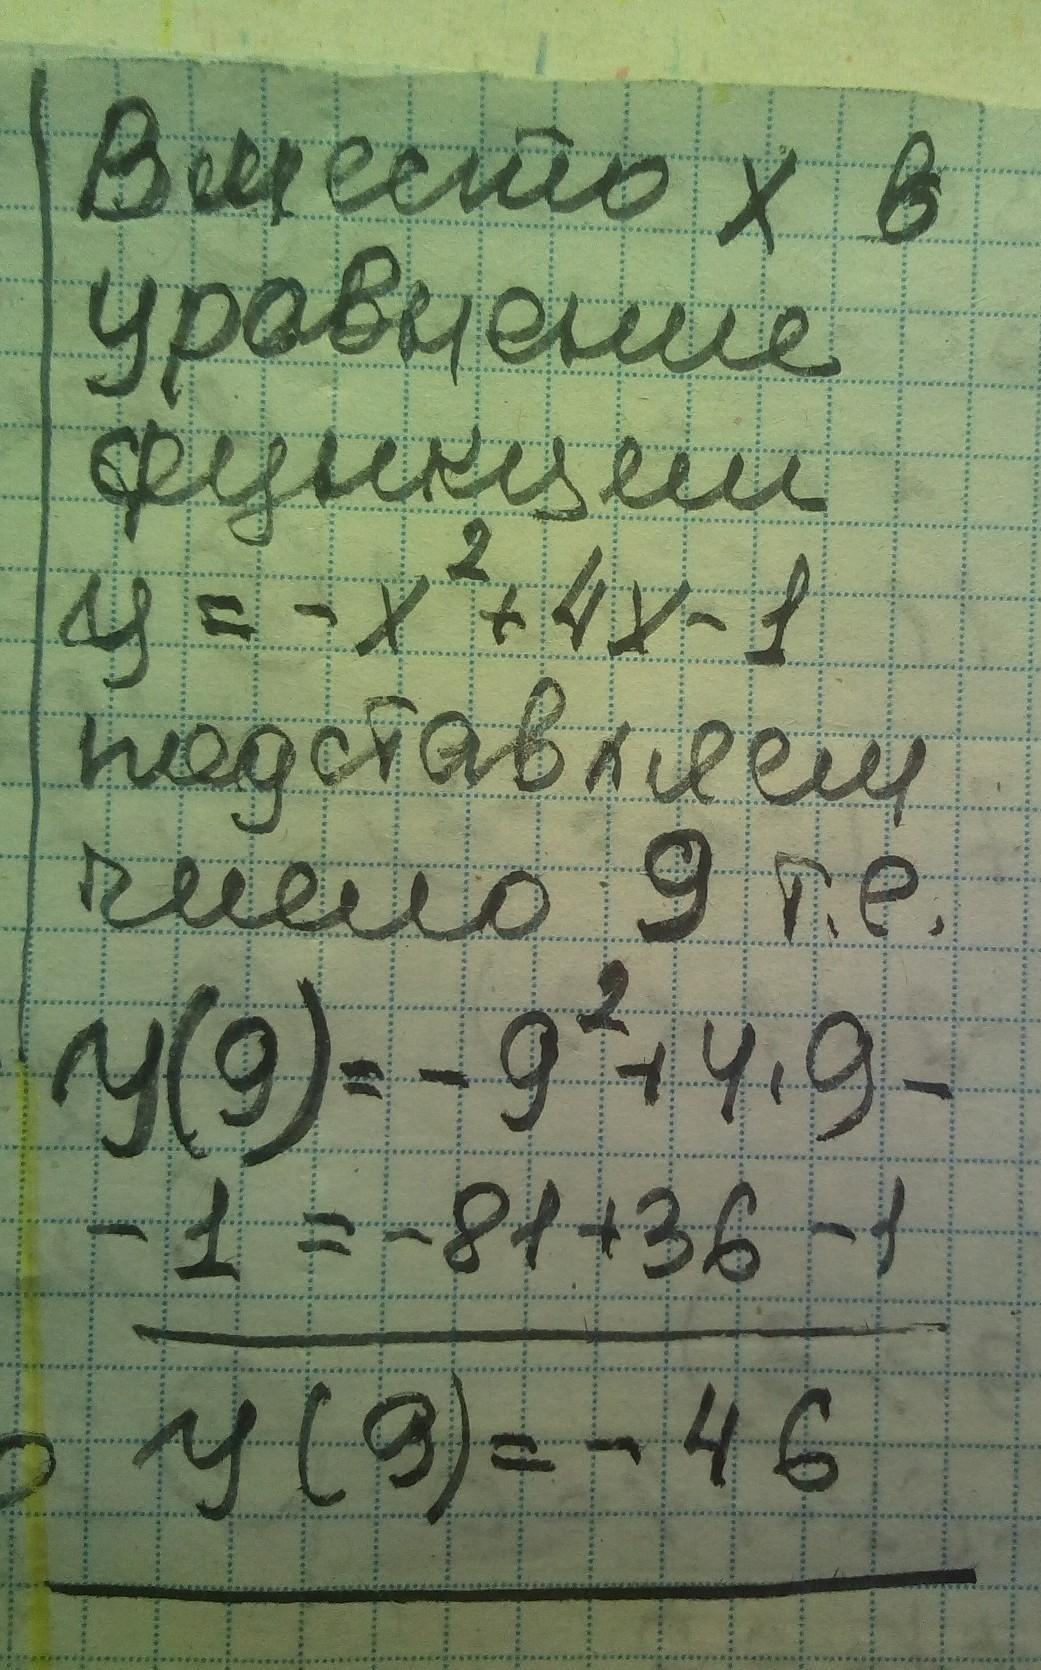 Вместо x в
уравнение
функции
y = -x² + 4x - 1
подставляем
число 9 т.е.
y(9) = - 9² + 4 · 9 -
- 1 = -81 + 36 - 1
y(9) = - 46